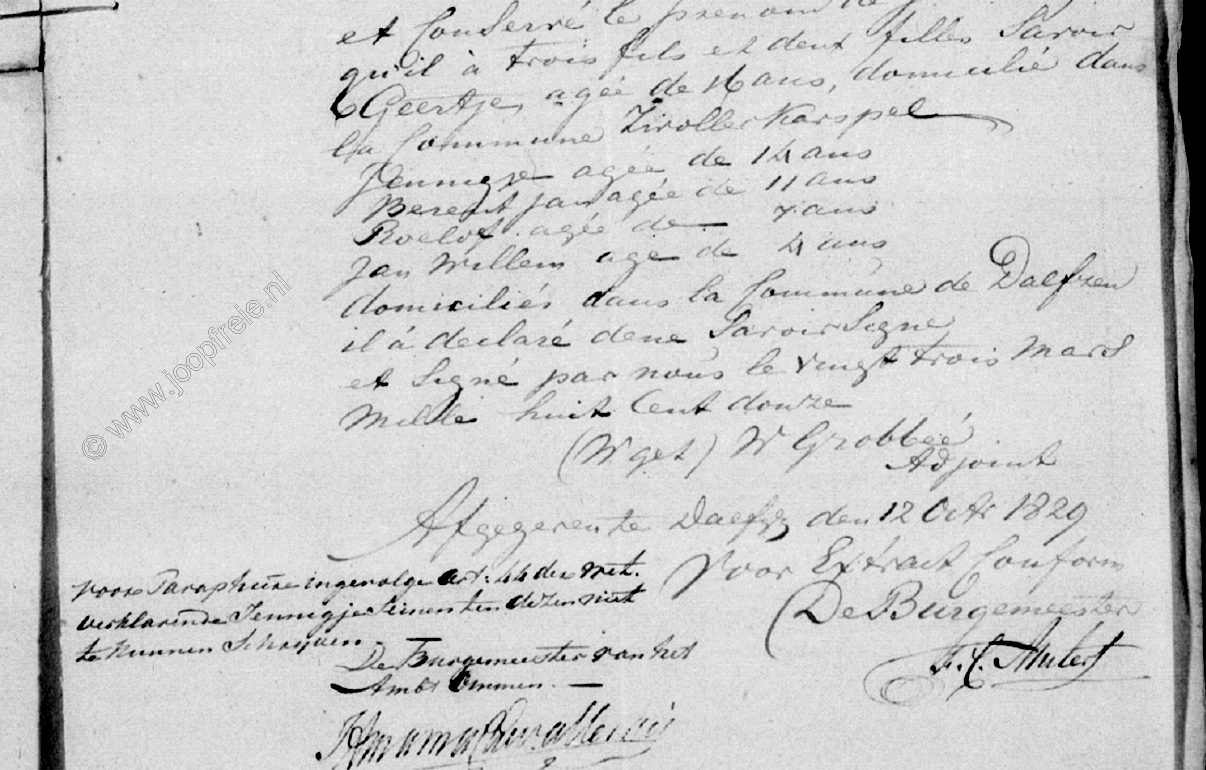 et Conservé le prenom de
qu'il à trois fils et deux filles Savoir
Geertje, agée de 16 ans, domicilié dans
la Commune Zwollerkarspel
Jennigje agée de 14 ans
Berent Jan agée de 11 ans
Roelof agée de 7 ans
Jan Willem agé de 4 ans
domiciliés dans la Commune de Dalfzen
il á declaré de ne Savoir Signe
et Signé par nous le vingt trois Mars
Mille huit Cent douze
(W get) W Grobbeé
Adjoint
Afgegeven te Dalfz den 12 Octr 1829
Voor Extract Conform
De Burgemeester
voor Paraphure ingevolge art: 44 der wet.
verklarende Jennigje dezen niet
te kunnen Schrijven
De Burgemeester van het
Ambt Ommen. —
© www.joopfreie.nl